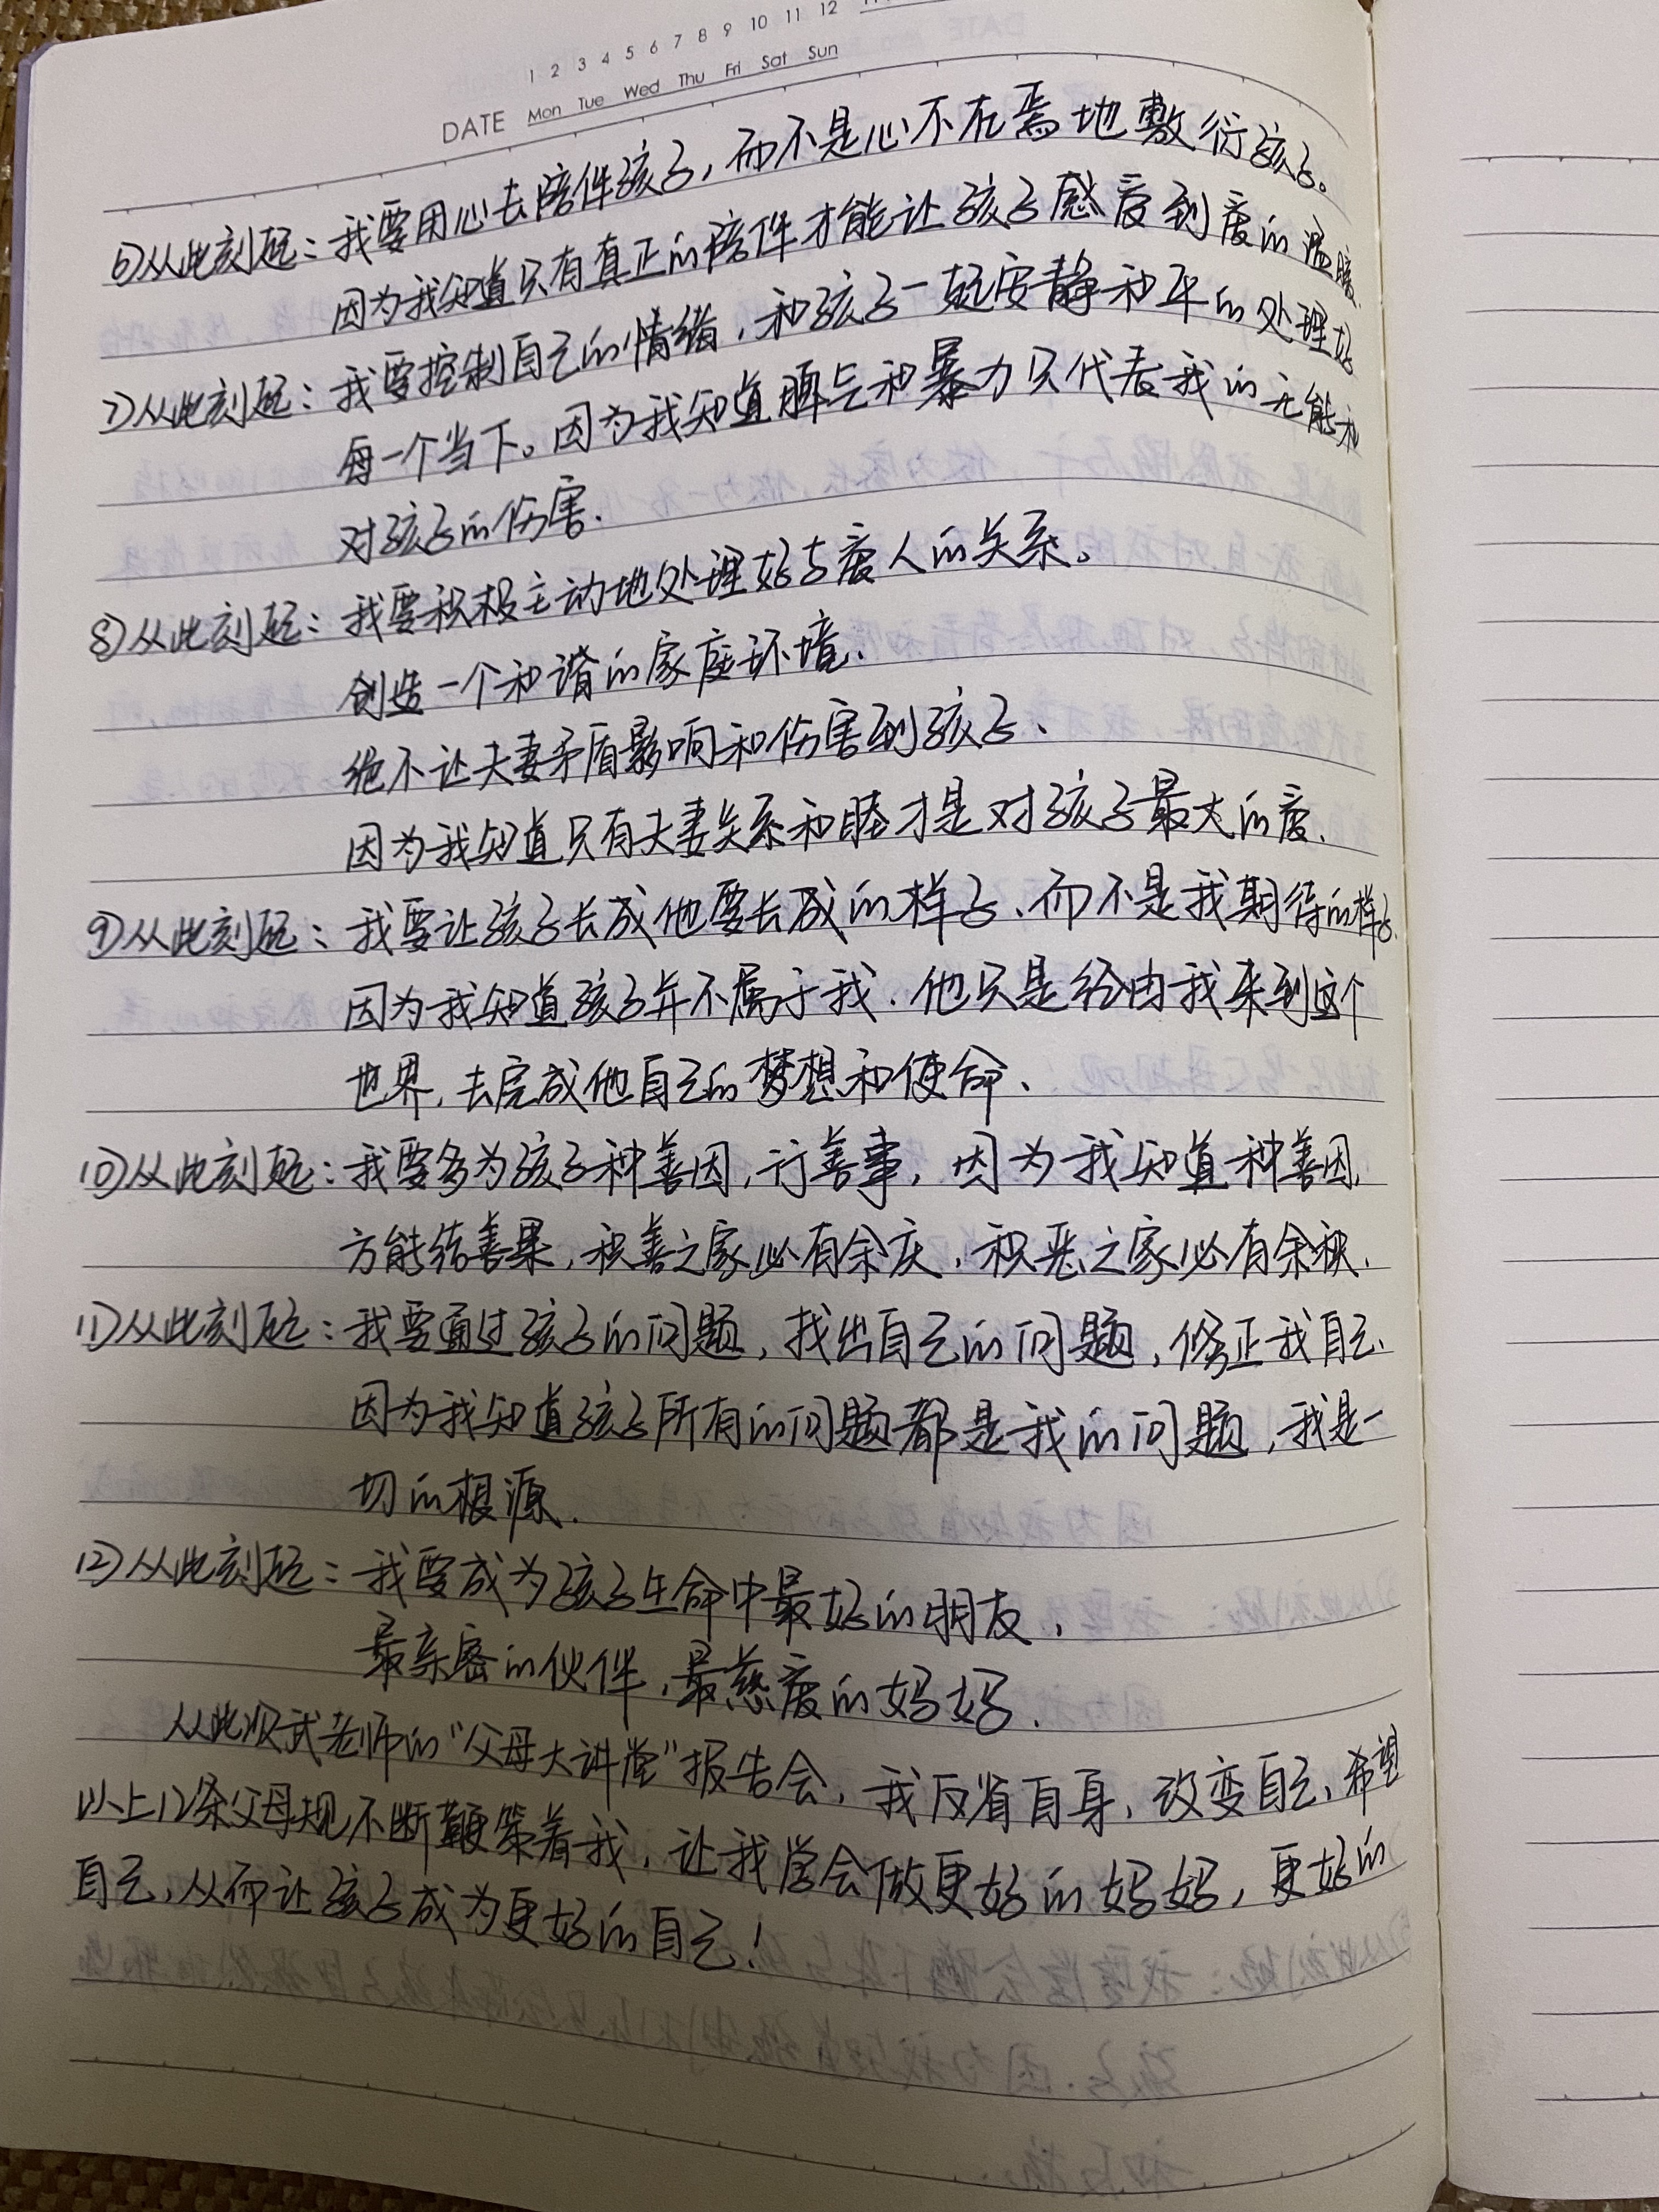 1 2 3 4 5 6 7 8 9 10 11 12
DATE Mon Tue Wed Thu Fri Sat Sun
6)从此刻起：我要用心去陪伴孩子，而不是心不在焉地敷衍孩子。
因为我知道只有真正的陪伴才能让孩子感受到爱的温暖.
7)从此刻起：我要控制自己的情绪，和孩子一起安静和平的处理好
每一个当下。因为我知道脾气和暴力只代表我的无能和
对孩子的伤害.
8)从此刻起：我要积极主动地处理好与爱人的关系。
创造一个和谐的家庭环境、
绝不让夫妻矛盾影响和伤害到孩子、
因为我知道只有夫妻关系和睦才是对孩子最大的爱、
9)从此刻起：我要让孩子长成他要长成的样子、而不是我期待的样子.
因为我知道孩子并不属于我.他只是经由我来到这个
世界,去完成他自己的梦想和使命、
10)从此刻起：我要多为孩子种善因,行善事，因为我知道种善因,
方能结善果,积善之家必有余庆,积恶之家必有余秧.
11)从此刻起：我要通过孩子的问题,找出自己的问题,修正我自己、
因为我知道孩子所有的问题都是我的问题,我是一
切的根源.
12)从此刻起：我要成为孩子生命中最好的朋友,
最亲密的伙伴,最慈爱的妈妈.
从此次武老师的"父母大讲堂"报告会,我反省自身,改变自己,希望
以上12条父母规不断鞭策着我,让我学会做更好的妈妈,更好的
自己,从而让孩子成为更好的自己!